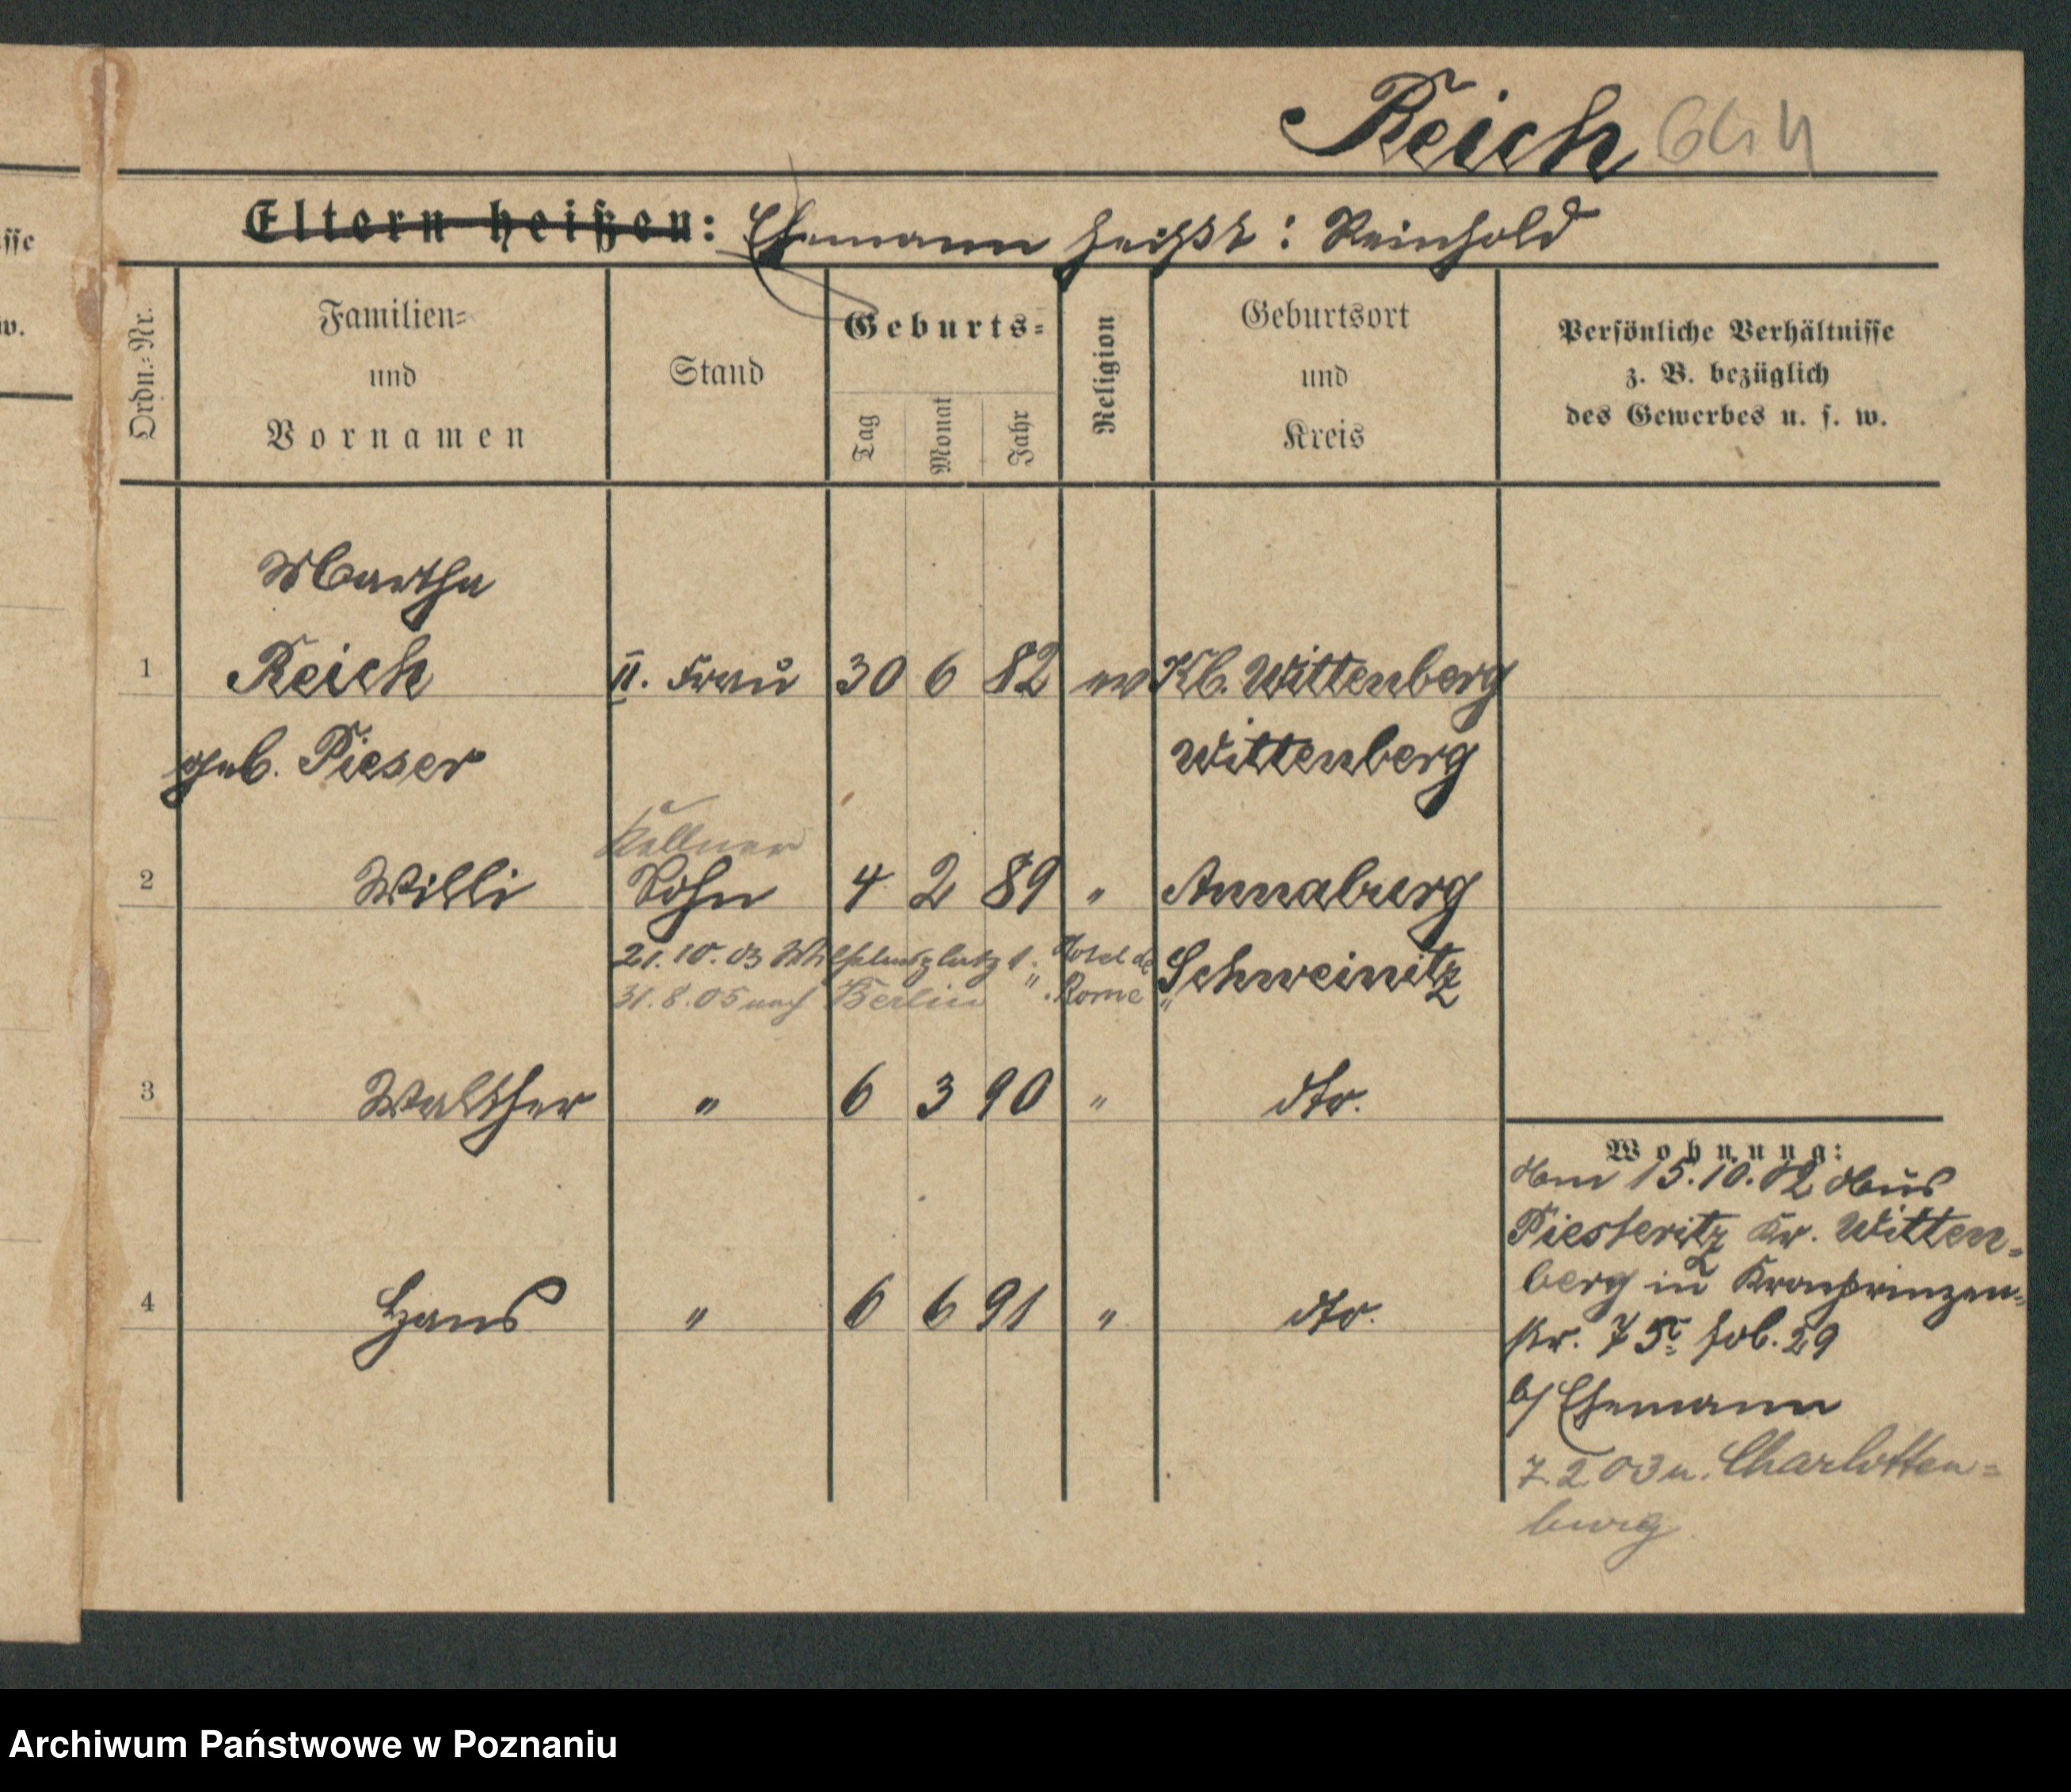 Reich
Eltern heißen: Ehemann heißt: Reinhold
Ordn.=Nr.
Familien=
und
Vornamen
Stand
Geburts=
Tag
Monat
Jahr
Religion
Geburtsort
und
Kreis
Persönliche Verhältnisse
z. B. bezüglich
des Gewerbes u. s. w.
Martha
1 Reich II. Frau 30 6 82 ev Kl. Wittenberg
geb. Pieser Wittenberg
Kellner
2 Willi Sohn 4 2 89 " Annaburg
21.10.03 Wilhelmsplatz 1. Hotel de Schweinitz
31.8.05 nach Berlin " Rome "
3 Walther " 6 3 90 " dto.
4 Hans " 6 6 91 " dto.
Wohnung:
Vom 15.10.02 aus
Piesteritz Kr. Witten-
berg in Kronprinzen-
str. 75 fol. 29
b/ Ehemann
7.2 03 n. Charlotten=
burg
sse
w.
Archiwum Państwowe w Poznaniu